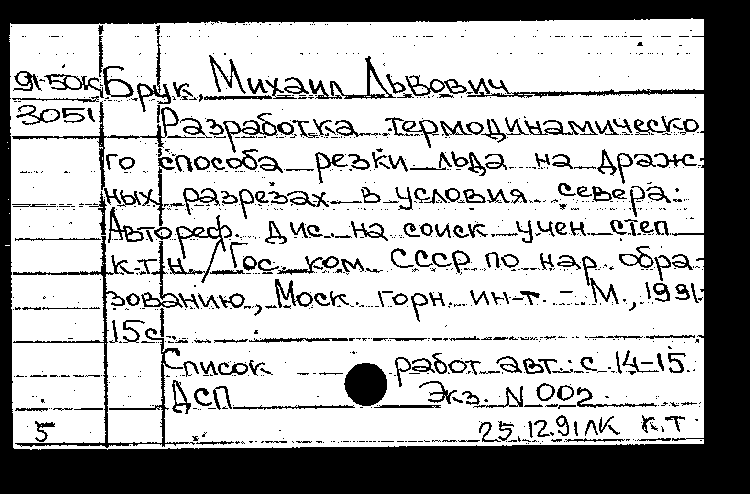 91-50К Брук, Михаил Львович
3051 Разработка термодинамическо
го способа резки льда на драж-
ных разрезах в условия севера:
Автореф. дис. на соиск. учен степ
к.т.н. / Гос. ком. СССР по нар. обра-
зованию, Моск. горн. ин-т. - М., 1991-
15с.
Список работ авт.: с 14-15
ДСП Экз. N 002
5 25.12.91 ЛК К.Т